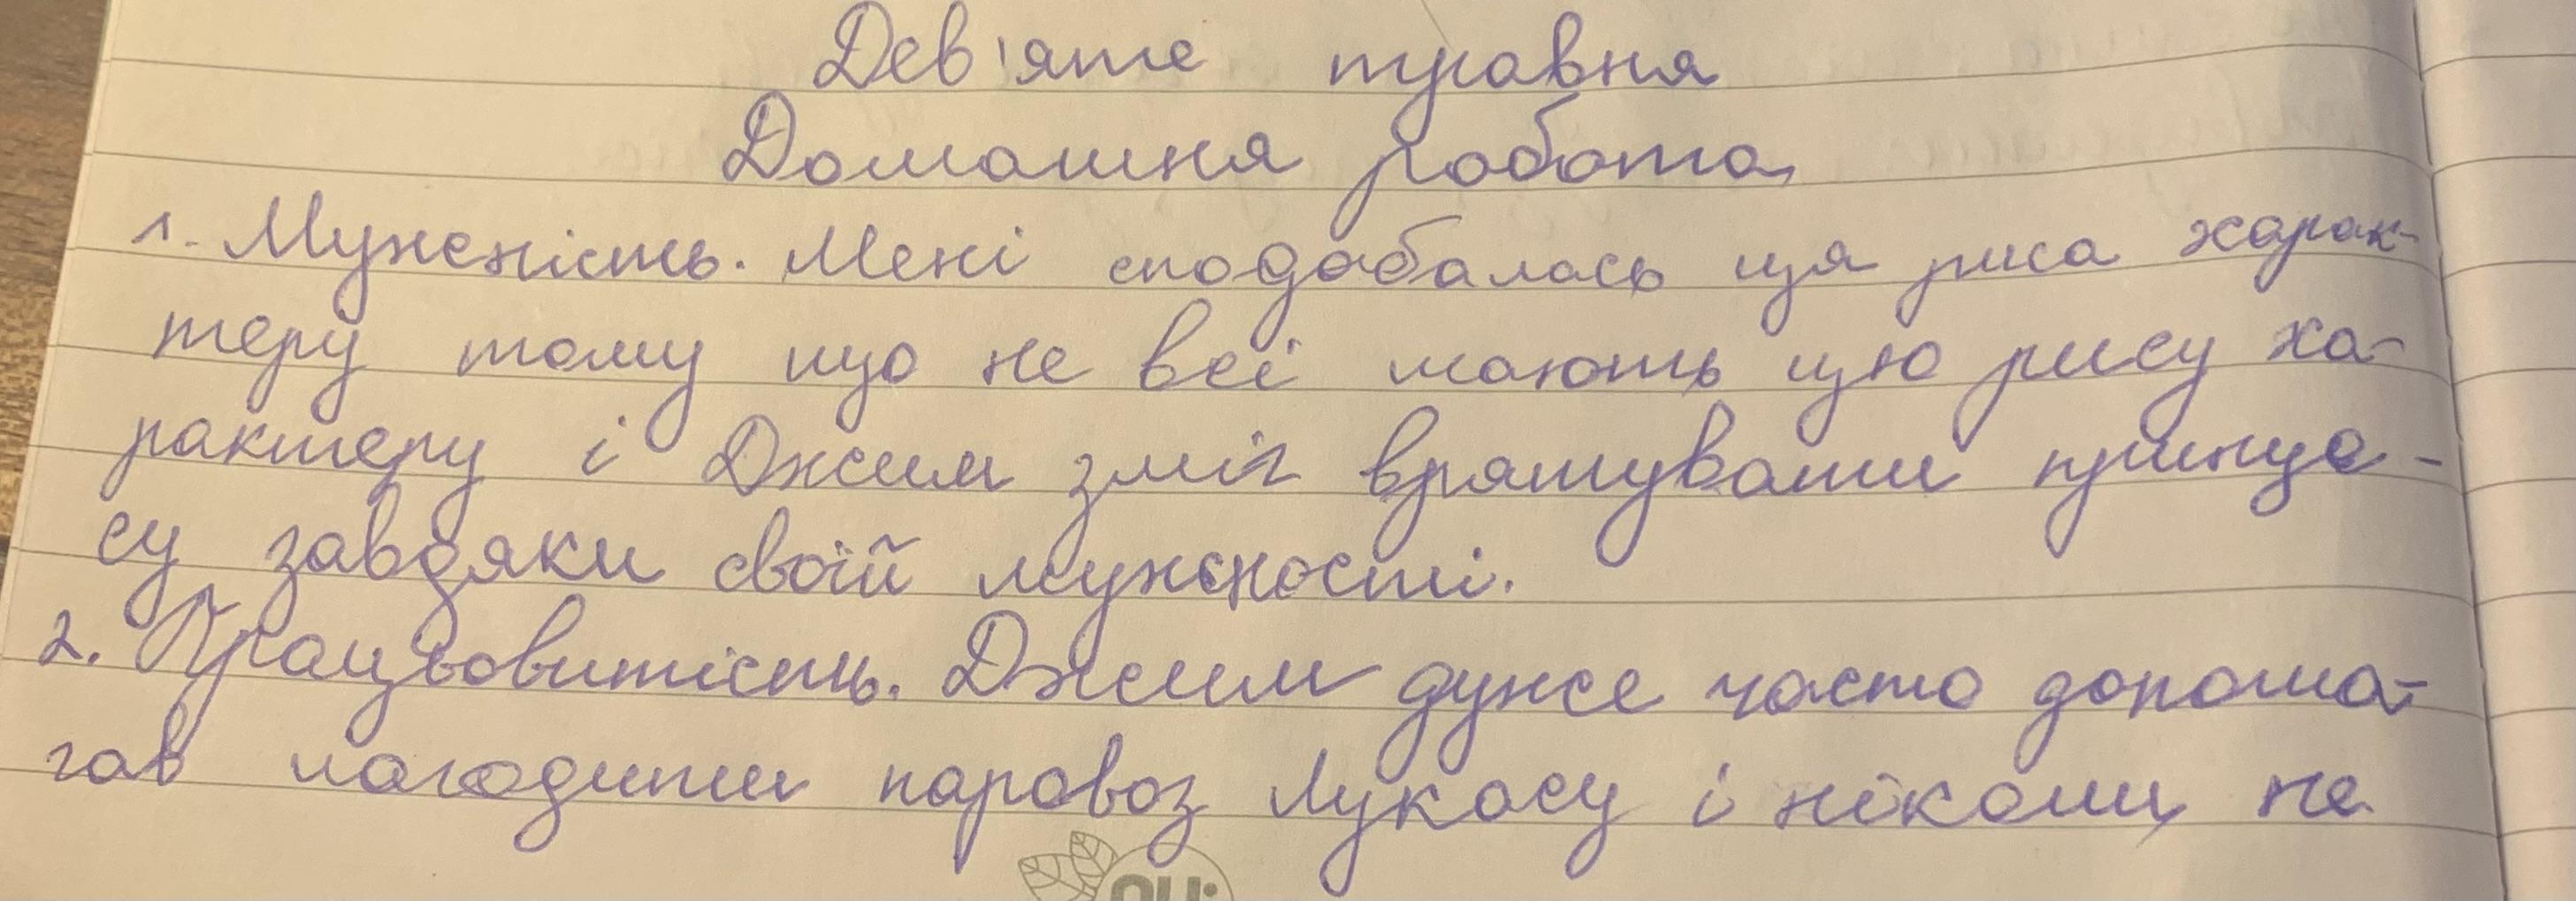 Дев'яте травня
Домашня робота
1. Мужність. Мені сподобалась ця риса харак-
теру тому що не всі мають цю рису ха-
рактеру і Джим зміг врятувати принце-
су завдяки своїй мужності.
2. Працьовитість. Джим дуже часто допома-
гав лагодити паровоз Лукасу і ніколи не